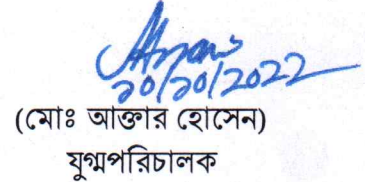 ১০/১০/2022
(মোঃ আক্তার হোসেন)
যুগ্মপরিচালক